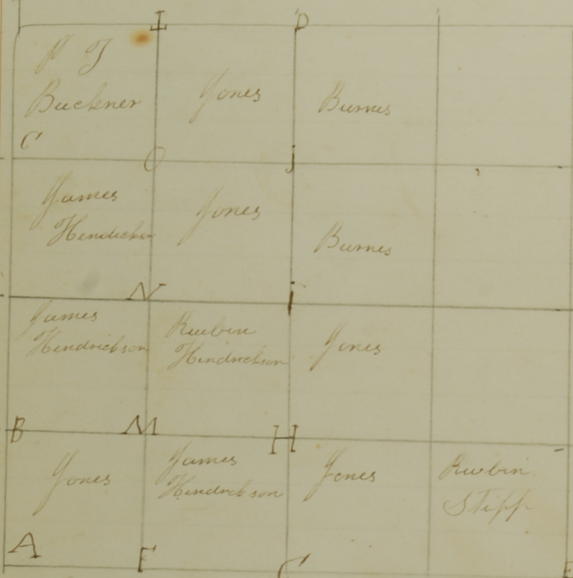 L D
P T
Buckner
Jones
Burnes
C O j
James
Hendickson
Jones
Burnes
N i
James
Hendrickson
Ruebin
Hendrickson
Jones
B M H
Jones
James
Hendrickson
Jones
Ruebin
Stipp
A F